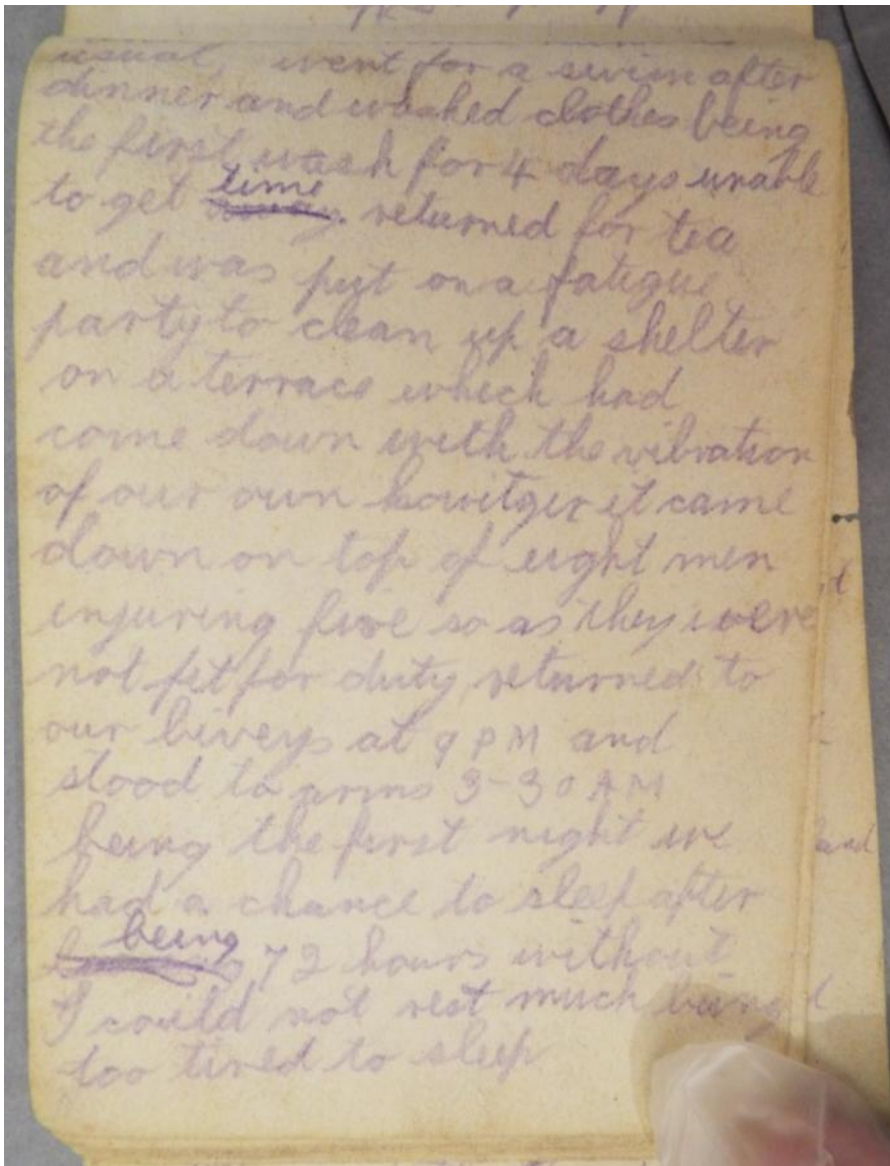 usual, went for a swim after
dinner and washed clothes being
the first wash for 4 days unable
to get time returned for tea
and was put on a fatigue
party to clean up a shelter
on a terrace which had
come down with the vibration
of our own howitzer it came
down on top of eight men
injuring five so as they were
not fit for duty, returned to
our biveys at 9 PM and
stood to arms 3-30 AM
being the first night we
had a chance to sleep after
being 72 hours without
I could not rest much being
too tired to sleep